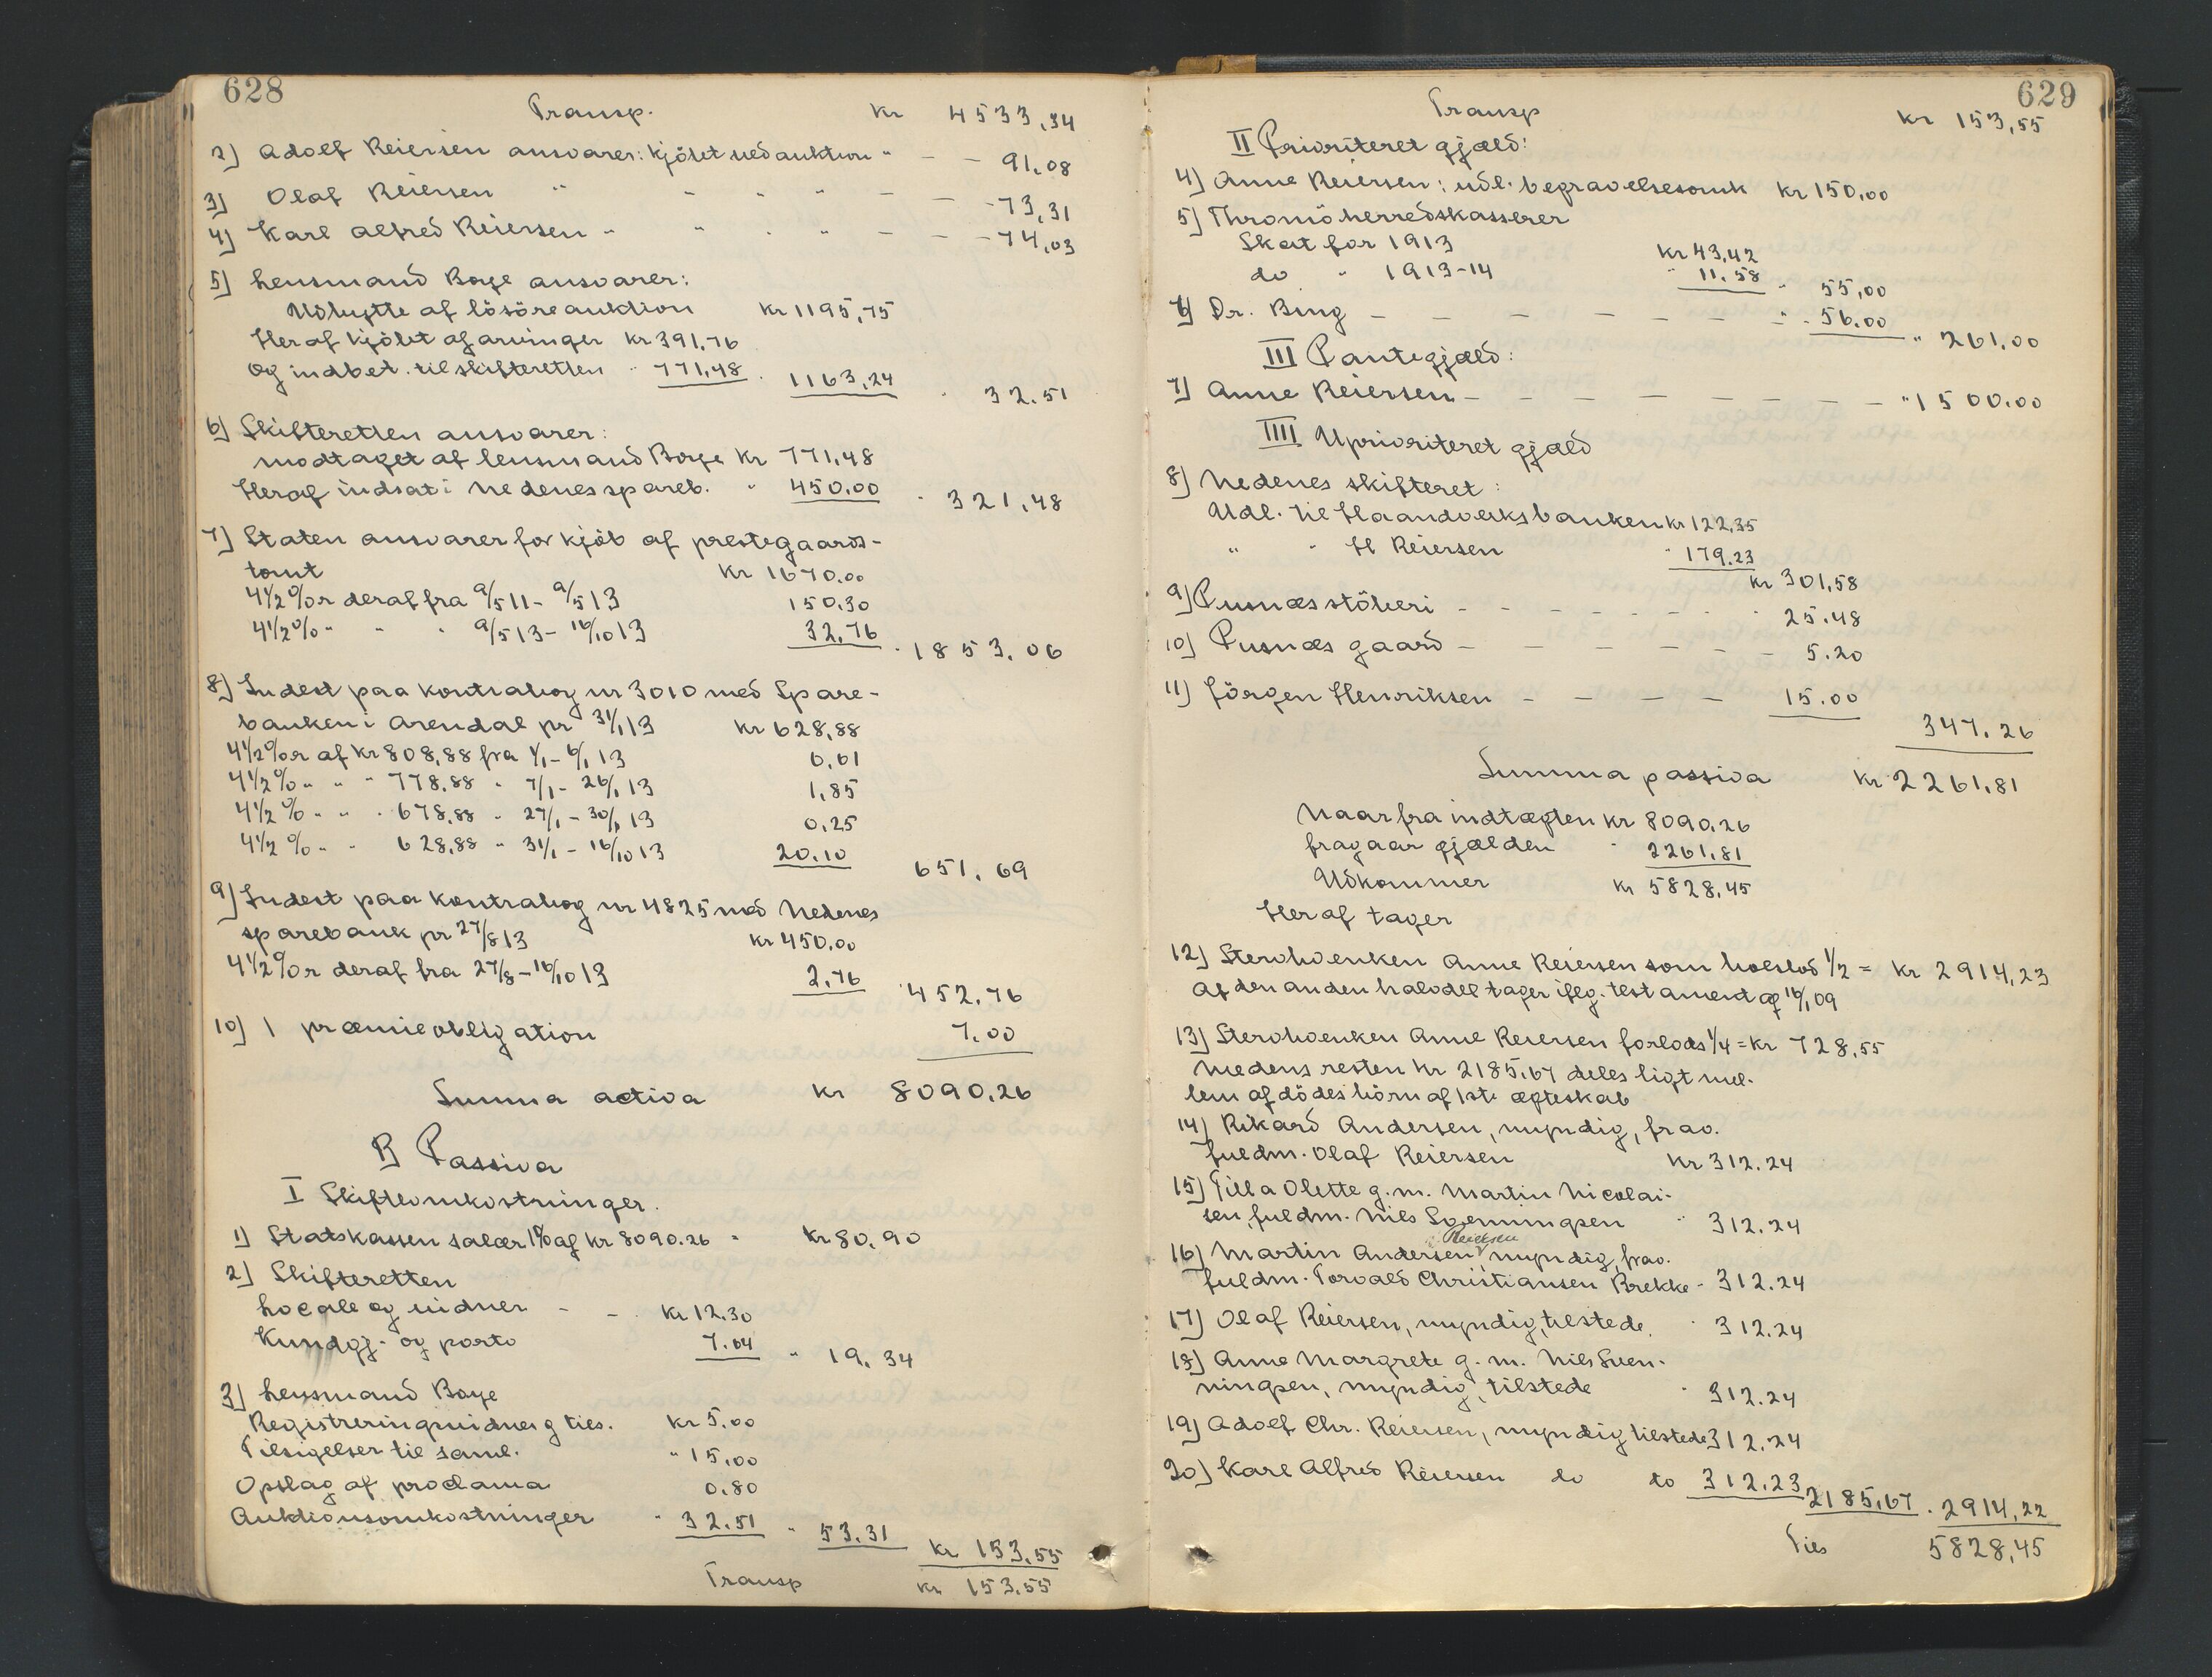 628
Transp. kr 4533,34
2) Adolf Reiersen ansvarer: kjöbt ved auktion " — — 91,08
3) Olaf Reiersen " " " " — — - 73,31
4) Karl Alfred Reiersen " " " " — — - 74,03
5) Lensmand Boye ansvarer:
Udbytte af lösöreauktion kr 1195,75
Heraf kjöbt af arvinger kr 391,76
og indbet. til skifteretten " 771,48 . 1163,24 " 32.51
6) Skifteretten ansvarer:
modtaget af lensmand Boye kr 771,48
Heraf indsat i Nedenes spareb. " 450.00 " 321,48
7) Staten ansvarer for kjöb af prestegaards-
tomt kr 1670.00
4 1/2 % r deraf fra 9/5 11 - 9/5 13 150.30
4 1/2 % " " " 9/5 13 - 16/10 13 32.76 " 1853.06
8) Indest paa kontrabog nr 3010 med Spare-
banken i Arendal pr 31/1 13 kr 628,88
4 1/2 % r af kr 808,88 fra 1/1 - 6/1 13 0.61
4 1/2 % " " " 778.88 " 7/1 - 26/1 13 1,85
4 1/2 % " " " 678,88 " 27/1 - 30/1 13 0.25
4 1/2 % " " 628,88 " 31/1 - 16/10 13 20.10 651.69
9) Indest paa kontrabog nr 4825 med Nedenes
sparebank pr 27/8 13 kr 450.00
4 1/2 % r deraf fra 27/8 - 16/10 13 2.76 " 452.76
10) 1 præmieobligation 7.00
Summa activa kr 8090.26
B Passiva
I Skifteomkostninger.
1) Statskassen salær 1% af kr 8090.26 " kr 80.90
2) Skifteretten
Locale og vidner - - kr 12.30
Kundgj. og porto 7.04 " 19.34
3) Lensmand Boye
Registreringsvidner g ties. kr 5.00
Tilsigelser til saml. " 15,00
Opslag af proclama 0.80
Auktionsomkostninger " 32.51 " 53.31 kr 153.55
Transp kr 153.55
629
Transp kr 153,55
II Prioriteret gjæld:
4) Anne Reiersen: udl. begravelsesomk kr 150,00
5) Thromö herredskasserer
Skat for 1913 kr 43,42
do " 1913-14 " 11.58 " 55,00
6) Dr. Bing — — — — — — " 56.00 " 261.00
III Pantegjæld:
7) Anne Reiersen — — — — — — — — " 1500.00
IIII Uprioriteret gjæld
8) Nedenes skifteret:
Udl. til Haandverksbanken kr 122,35
" " H Reiersen " 179.23
kr 301,58
9) Pusnæs stöberi - - - - - - 25.48
10) Pusnæs gaard — — — — — — 5.20
11) Jörgen Henriksen — — — — 15.00
347.26
Summa passiva kr 2261,81
Naar fra indtægten kr 8090.26
fragaar gjælden " 2261.81
Udkommer kr 5828,45
Heraf tager
12) Stervboenken Anne Reiersen som boeslod 1/2 = kr 2914,23
Af den anden halvdel tager iflg. testament af 16/1 09
13) Stervboenken Anne Reiersen forlods 1/4 = kr 728,55
medens resten kr 2185.67 deles ligt mel-
lem afdödes börn af 1ste egteskab
14) Rikard Andersen, myndig, frav.
fuldm. Olaf Reiersen kr 312.24
15) Tilla Olette g.m. Martin Nicolai-
sen, fuldm. Nils Svenningsen " 312.24
Reiersen
16) Martin Andersen, myndig, frav.
fuldm. Torvald Christiansen Brekke - 312.24
17) Olaf Reiersen, myndig, tilstede. " 312.24
18) Anna Margrete g.m. Nils Sven-
ningsen, myndig, tilstede " 312.24
19) Adolf Chr. Reiersen, myndig tilstede 312.24
20) Karl Alfred Reiersen do do 312.23 2185,67 . 2914,22
Ties 5828,45